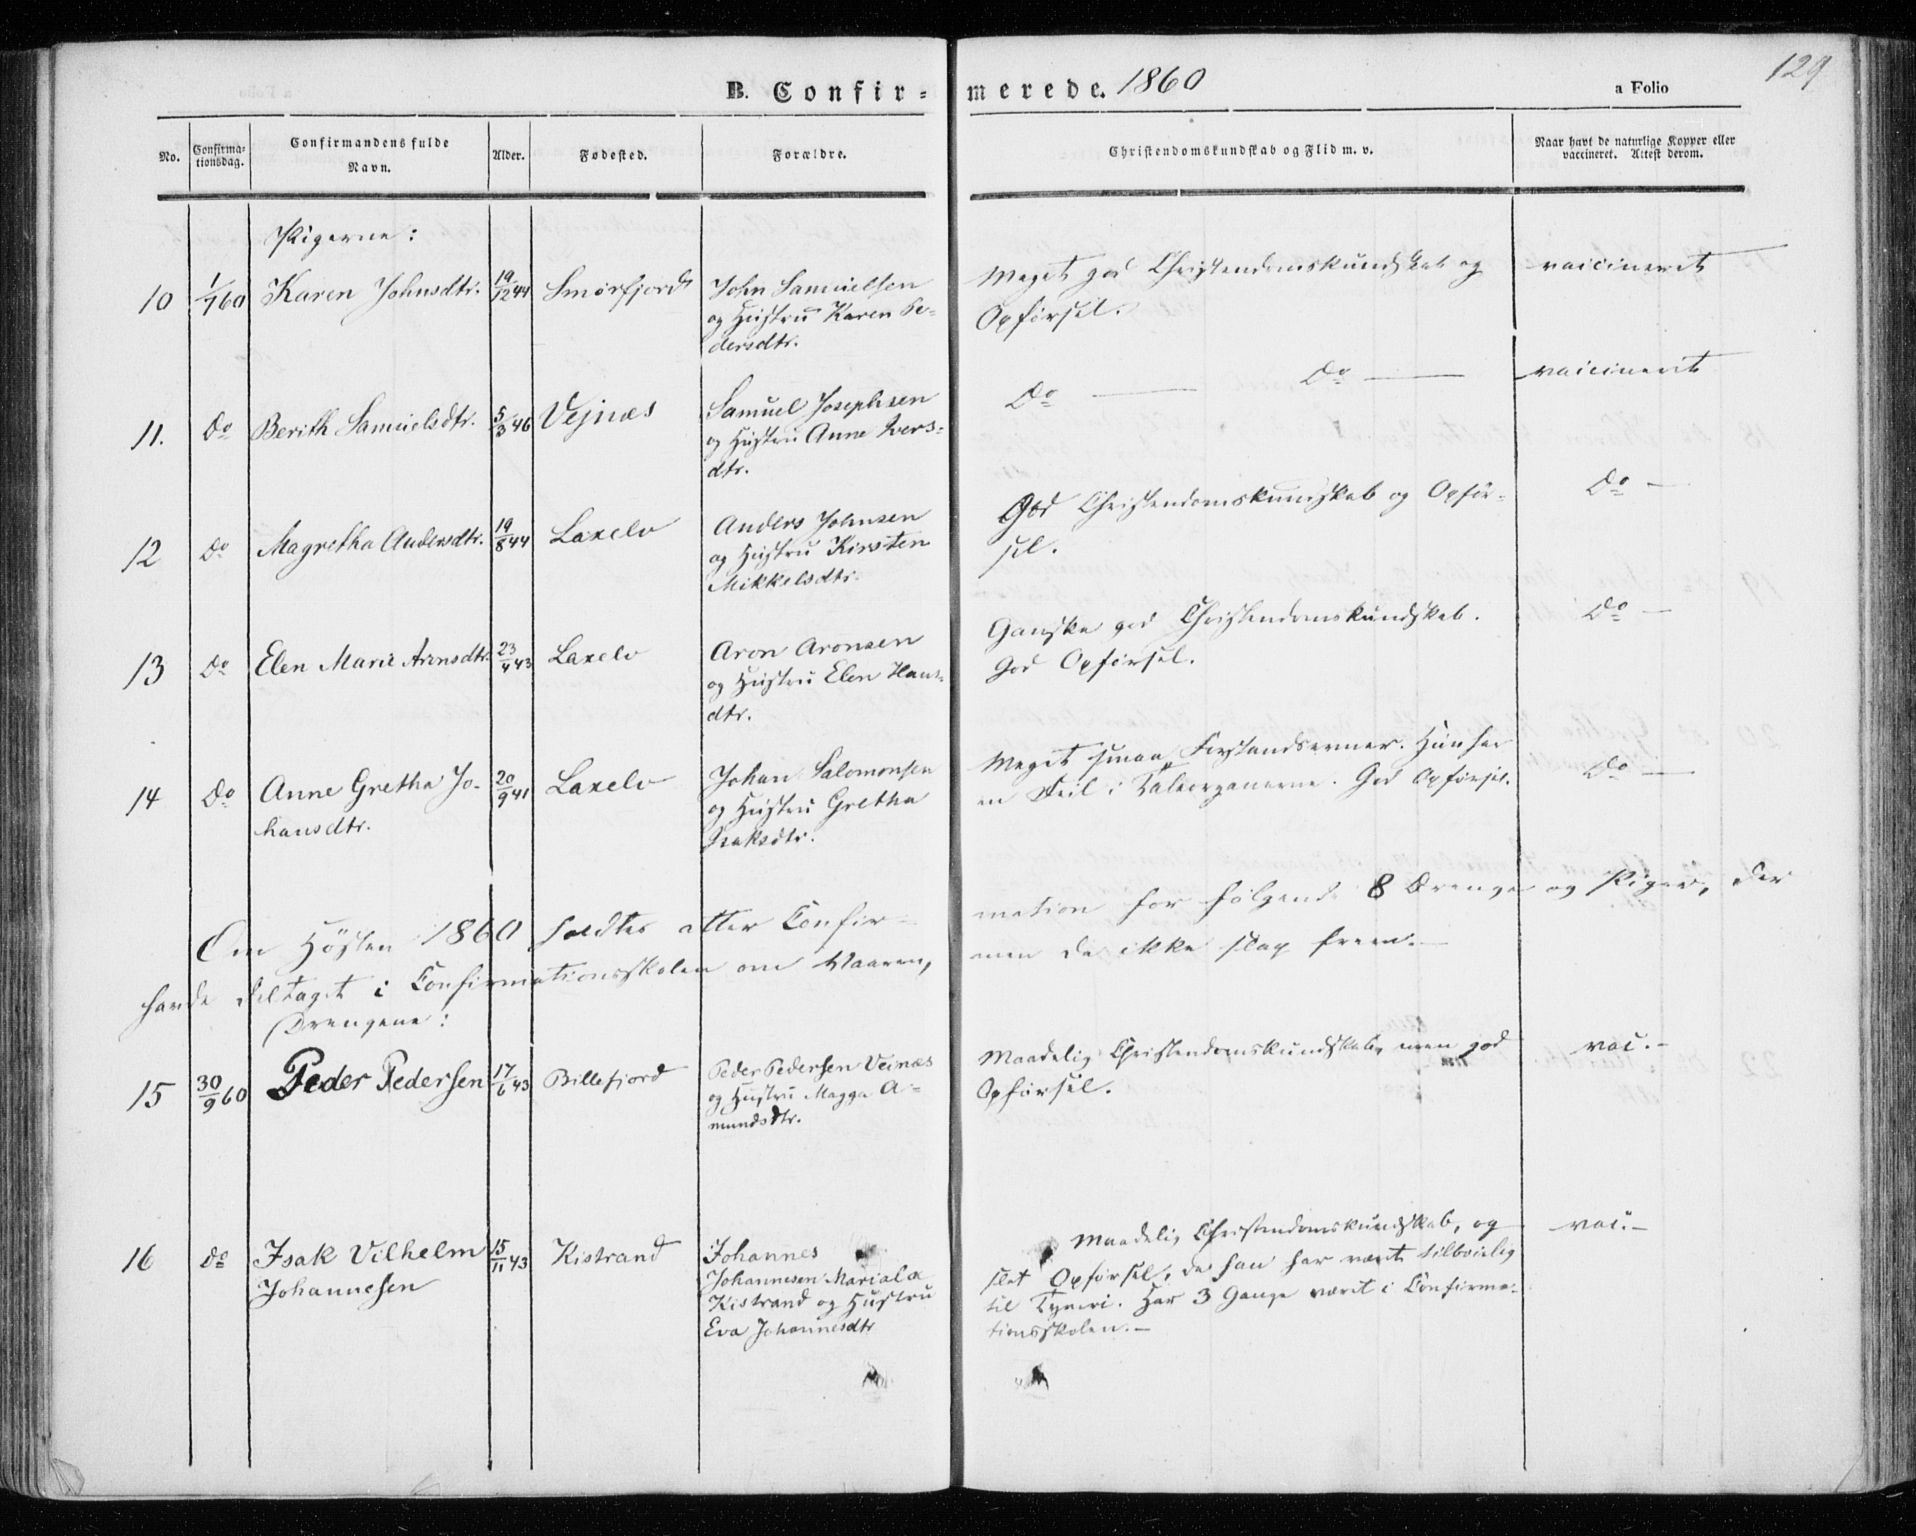 129
B. Confir= merede. 1860 a Folio
No. Confirma-tionsdag. Confirmandens fulde Navn. Alder. Fødested. Forældre. Christendomskundskab og Flid m. v. Naar havt de naturlige Kopper eller vaccineret. Attest derom.
Pigerne:
10 1/7 60 Karen Johnsdtr. 19/12 44 Smørfjord John Samuelsen Meget god Christendomskundskab og vaccineret
og Hustru Karen Pe- Opførsel.
dersdtr.
11. Do Berith Samuelsdtr. 5/3 46 Vejnæs Samuel Josephsen Do — Do — vaccineret
og Hustru Anne Ivers-
dtr.
12 Do Magretha Andersdtr. 19/8 44 Laxelv Anders Johnsen God Christendomskundskab og Opfør- Do —
og Hustru Kirsten sel.
Mikkelsdtr.
13 Do Elen Marie Arensdtr. 23/4 43 Laxelv Aron Aronsen Ganske god Christendomskundskab. Do —
og Hustru Elen Hans- God Opførsel.
dtr.
14 Do Anne Gretha Jo- 20/9 41 Laxelv Johan Salomonsen Meget smaa Forstandsevner. Hun har Do —
hansdtr. og Hustru Gretha en Feil i Taleorganerne. God Opførsel.
Isaksdtr.
Om Høsten 1860 holdtes atter Confir- mation for følgende 8 Drenge og Piger, der
havde deltaget i Confirmationsskolen om Vaaren, men da ikke slap frem. —
Drengene:
15 30/9 60 Peder Pedersen 17/6 43 Billefjord Peder Pedersen Veinæs Maadelig Christendomskundskab, men god vac. —
og Hustru Magga A- Opførsel.
mundsdtr.
16 Do Isak Vilhelm 15/11 43 Kistrand Johannes Maadelig Christendomskundskab, og vac. —
Johannesen Johannesen slet Opførsel, da han har været tilbøielig
Kistrand og Hustru til Tyveri. Har 3 Gange været i Confirma-
Eva Johannesdtr tionsskolen. —